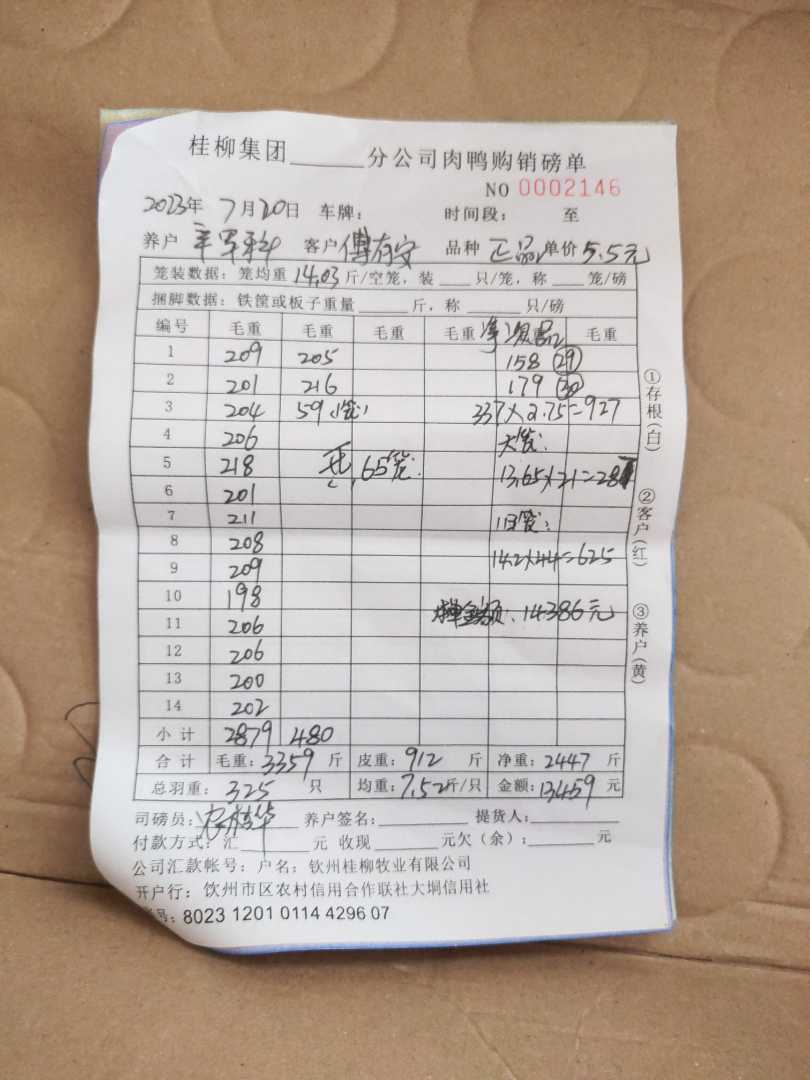 桂柳集团______分公司肉鸭购销磅单
NO 0002146
2023年 7月20日 车牌： 时间段： 至
养户 客户 傅有安 品种 正品 单价 5.5元
笼装数据：笼均重 14.03 斤/空笼，装____只/笼，称____笼/磅
捆脚数据：铁筐或板子重量______斤，称______只/磅
编号 毛重 毛重 毛重 毛重 毛重
1 209 205 158 (29)
2 201 216 179 (30)
3 204 59 337×2.75=927
4 206
5 218 65笼 13.65×21=287
6 201
7 211 旧笼：
8 208
9 209 14.2×44=625
10 198
11 206 金额：14386元
12 206
13 200
14 202
小计 2879 480
合计 毛重：3359 斤 皮重：912 斤 净重：2447 斤
总羽重：325 只 均重：7.52斤/只 金额：13459 元
司磅员： 养户签名：________ 提货人：________
付款方式：汇______元 收现______元欠（余）：______元
公司汇款帐号：户名：钦州桂柳牧业有限公司
开户行：饮州市区农村信用合作联社大垌信用社
号：8023 1201 0114 4296 07
①存根(白)
②客户(红)
③养户(黄)